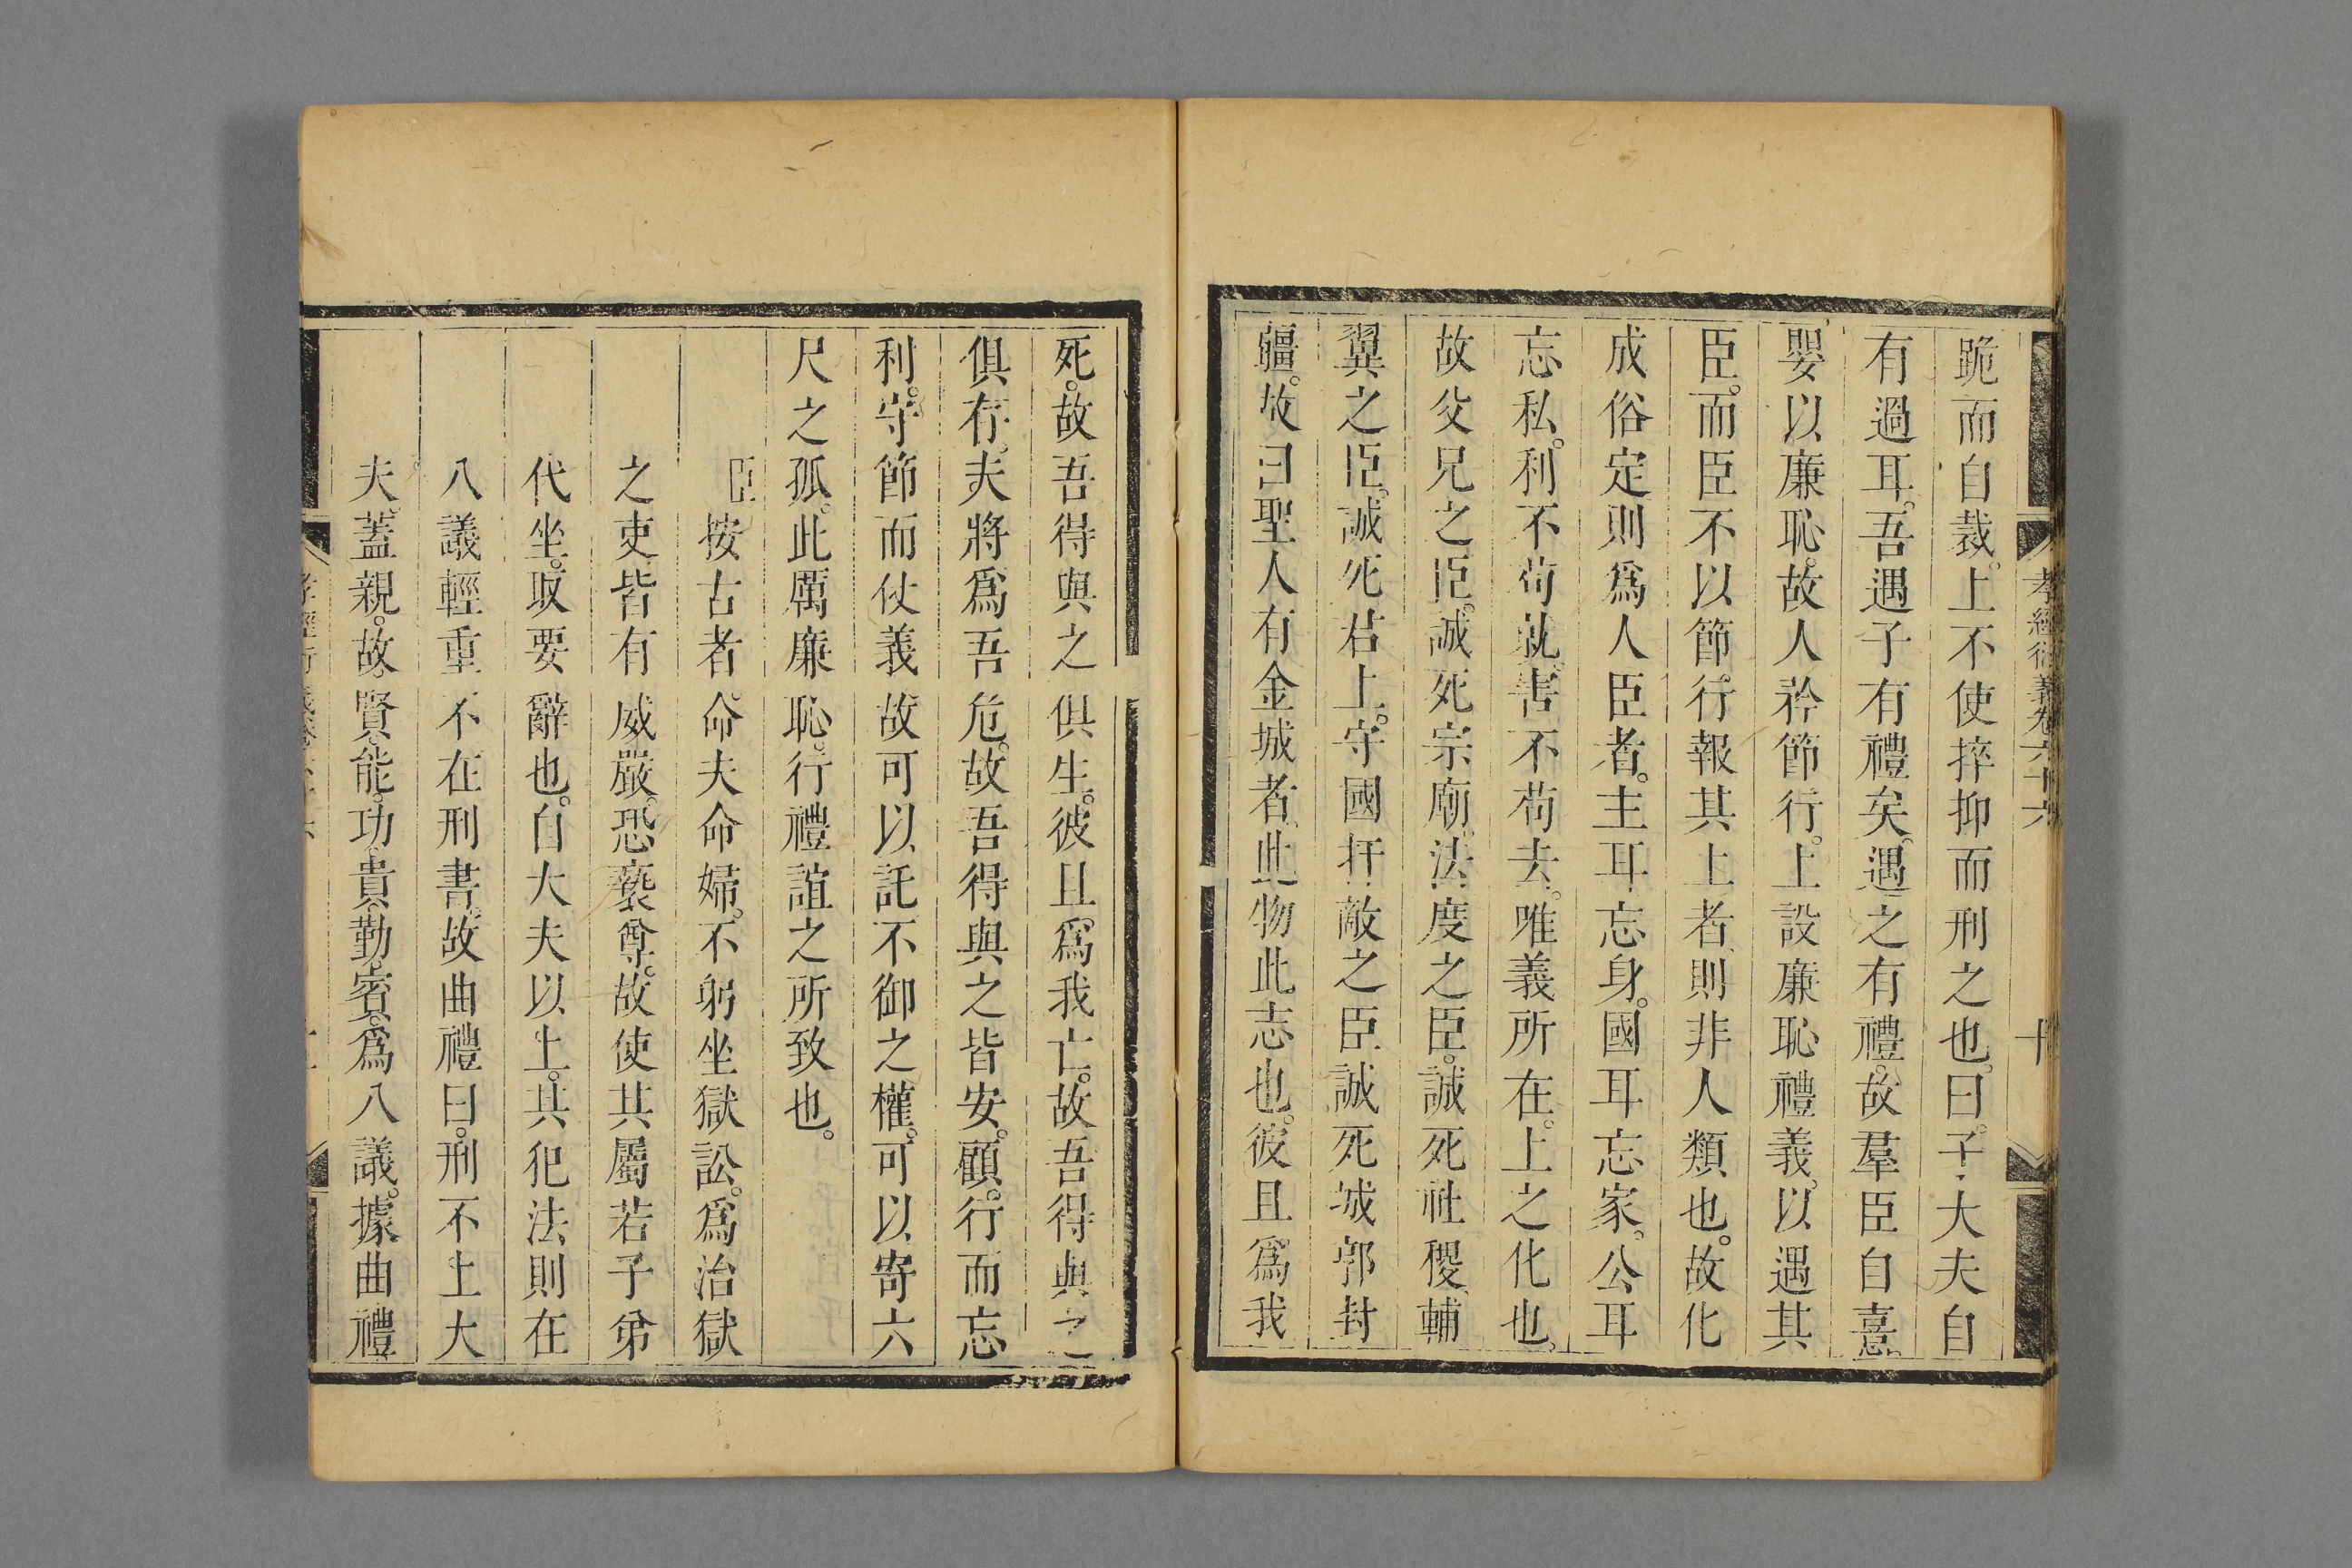 孝經衍義卷六十六 十
跪而自裁。上不使捽抑而刑之也。曰。子大夫自
有過耳。吾遇子有禮矣。遇之有禮。故羣臣自憙。
嬰以廉恥。故人矜節行。上設廉恥禮義。以遇其
臣。而臣不以節行報其上者、則非人類也。故化
成俗定則爲人臣者。主耳忘身。國耳忘家。公耳
忘私。利不苟就、害不苟去。唯義所在。上之化也。
故父兄之臣。誠死宗廟。法度之臣。誠死社稷、輔
翼之臣。誠死君上。守國扞敵之臣誠死城郭封
疆。故曰聖人有金城者、此物此志也。彼且爲我
死。故吾得與之俱生。彼且爲我亡。故吾得與之
俱存。夫將爲吾危。故吾得與之皆安。顧行而忘
利。守節而仗義故可以託不御之權。可以寄六
尺之孤。此厲廉恥。行禮誼之所致也。
臣按古者命夫命婦。不躬坐獄訟。爲治獄
之吏皆有威嚴。恐褻尊。故使其屬若子弟
代坐。取要辭也。自大夫以上。其犯法則在
八議輕重不在刑書。故曲禮曰。刑不上大
夫。蓋親。故。賢。能。功。貴。勤。賓。爲八議。據曲禮